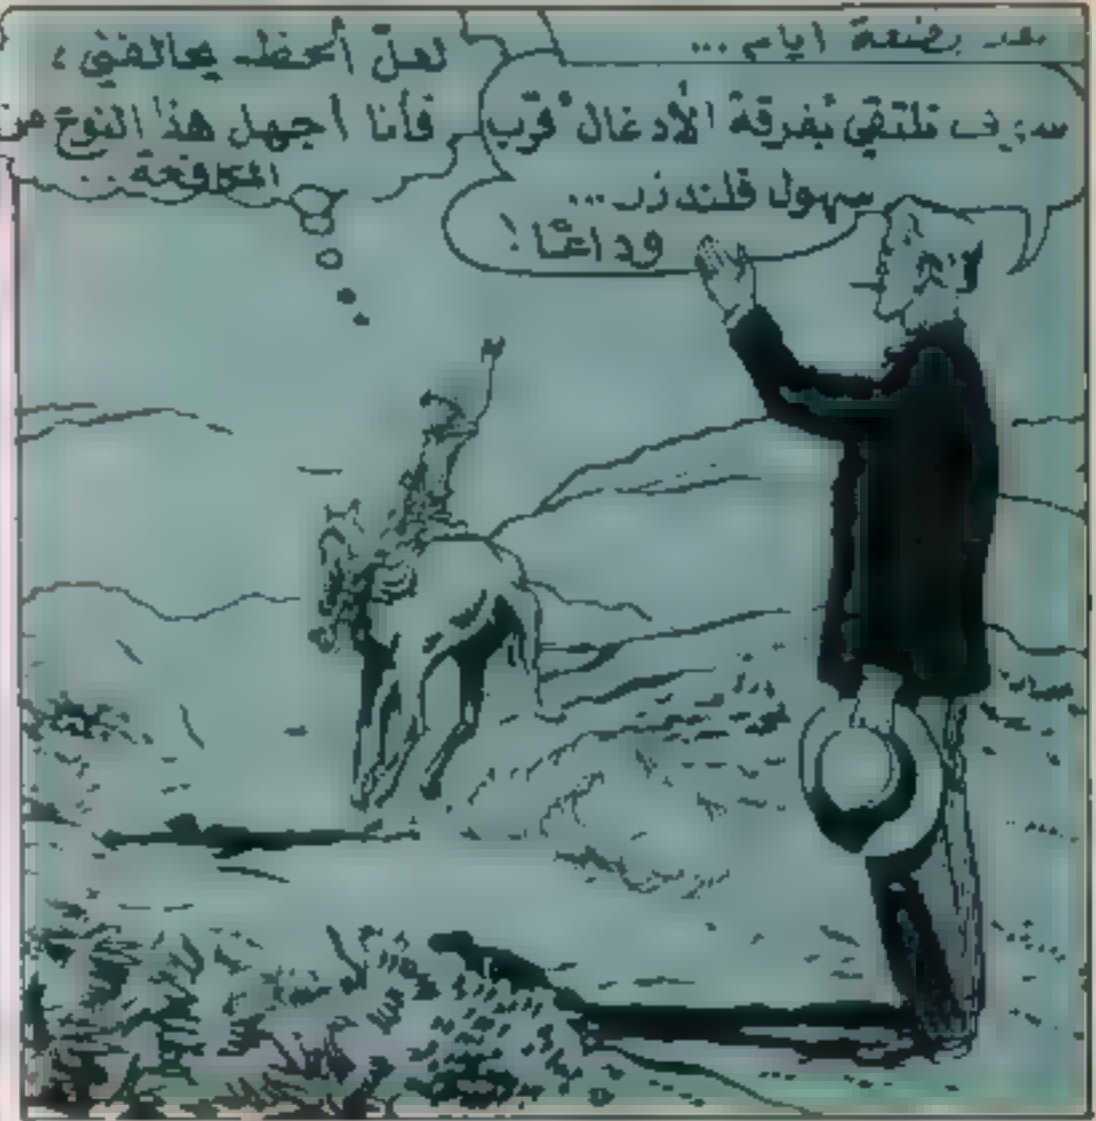 بعد بضعة ايام ...
سوف تلتقي بفرقة الأدغال قرب
سهول قلندزر...
وداعًا !
لعلّ الحظ يحالفني ،
فأنا أجهل هذا النوع من
المكافحة ..